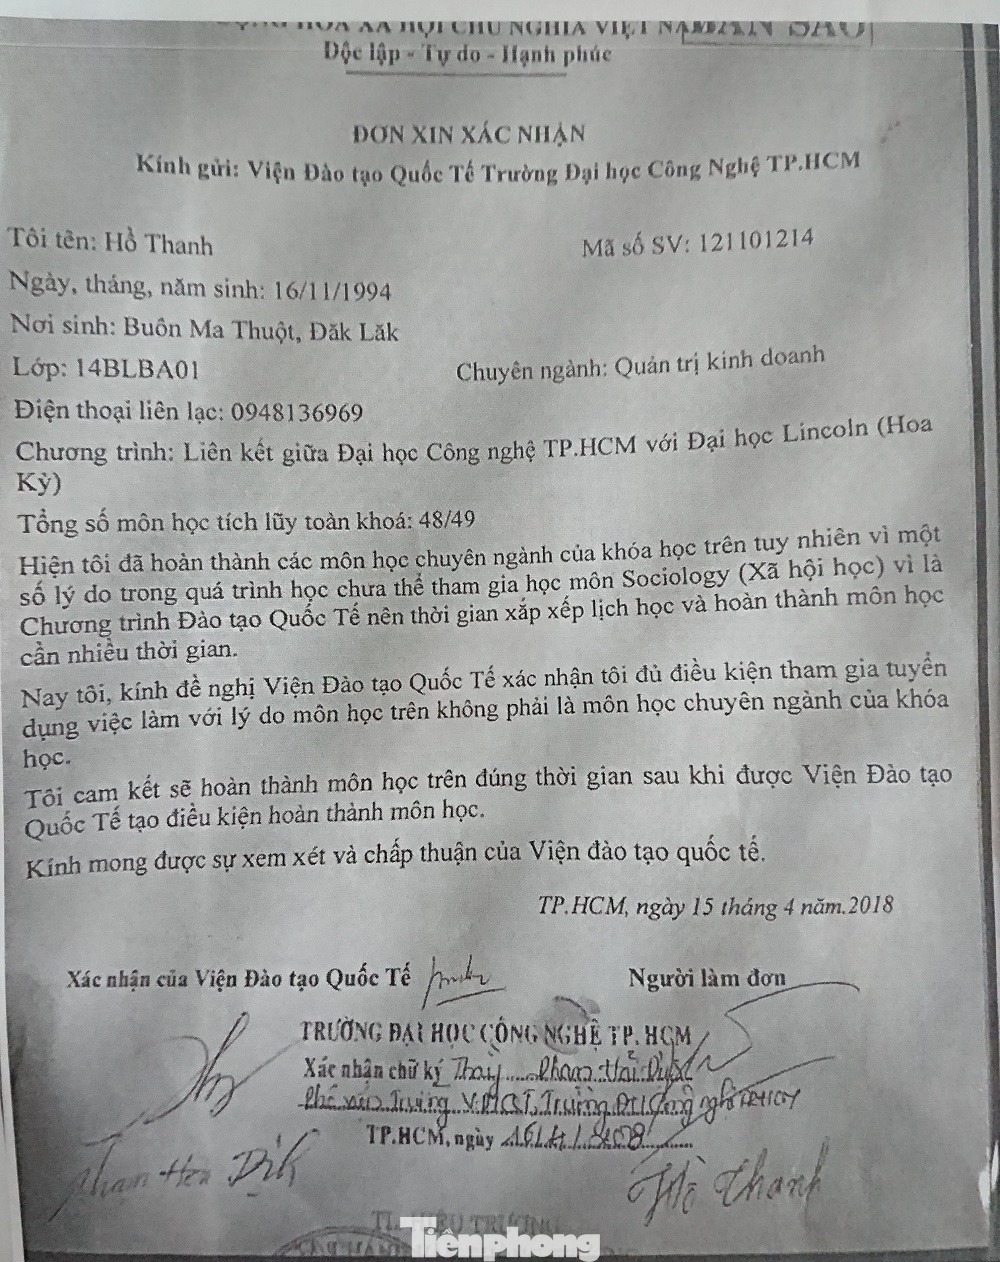 CỘNG HÒA XÃ HỘI CHỦ NGHĨA VIỆT NAM
BẢN SAO
Độc lập - Tự do - Hạnh phúc
ĐƠN XIN XÁC NHẬN
Kính gửi: Viện Đào tạo Quốc Tế Trường Đại học Công Nghệ TP.HCM
Tôi tên: Hồ Thanh Mã số SV: 121101214
Ngày, tháng, năm sinh: 16/11/1994
Nơi sinh: Buôn Ma Thuột, Đăk Lăk
Lớp: 14BLBA01 Chuyên ngành: Quản trị kinh doanh
Điện thoại liên lạc: 0948136969
Chương trình: Liên kết giữa Đại học Công nghệ TP.HCM với Đại học Lincoln (Hoa
Kỳ)
Tổng số môn học tích lũy toàn khoá: 48/49
Hiện tôi đã hoàn thành các môn học chuyên ngành của khóa học trên tuy nhiên vì một
số lý do trong quá trình học chưa thể tham gia học môn Sociology (Xã hội học) vì là
Chương trình Đào tạo Quốc Tế nên thời gian xắp xếp lịch học và hoàn thành môn học
cần nhiều thời gian.
Nay tôi, kính đề nghị Viện Đào tạo Quốc Tế xác nhận tôi đủ điều kiện tham gia tuyển
dụng việc làm với lý do môn học trên không phải là môn học chuyên ngành của khóa
học.
Tôi cam kết sẽ hoàn thành môn học trên đúng thời gian sau khi được Viện Đào tạo
Quốc Tế tạo điều kiện hoàn thành môn học.
Kính mong được sự xem xét và chấp thuận của Viện đào tạo quốc tế.
TP.HCM, ngày 15 tháng 4 năm.2018
Xác nhận của Viện Đào tạo Quốc Tế Người làm đơn
TRƯỜNG ĐẠI HỌC CÔNG NGHỆ TP. HCM
Xác nhận chữ ký Thầy
Phó viện Trưởng VĐTQT, Trường ĐH Công nghệ TP.HCM
TP.HCM, ngày 16/4/2018
Hồ Thanh
HIỆU TRƯỞNG
Tiênphong